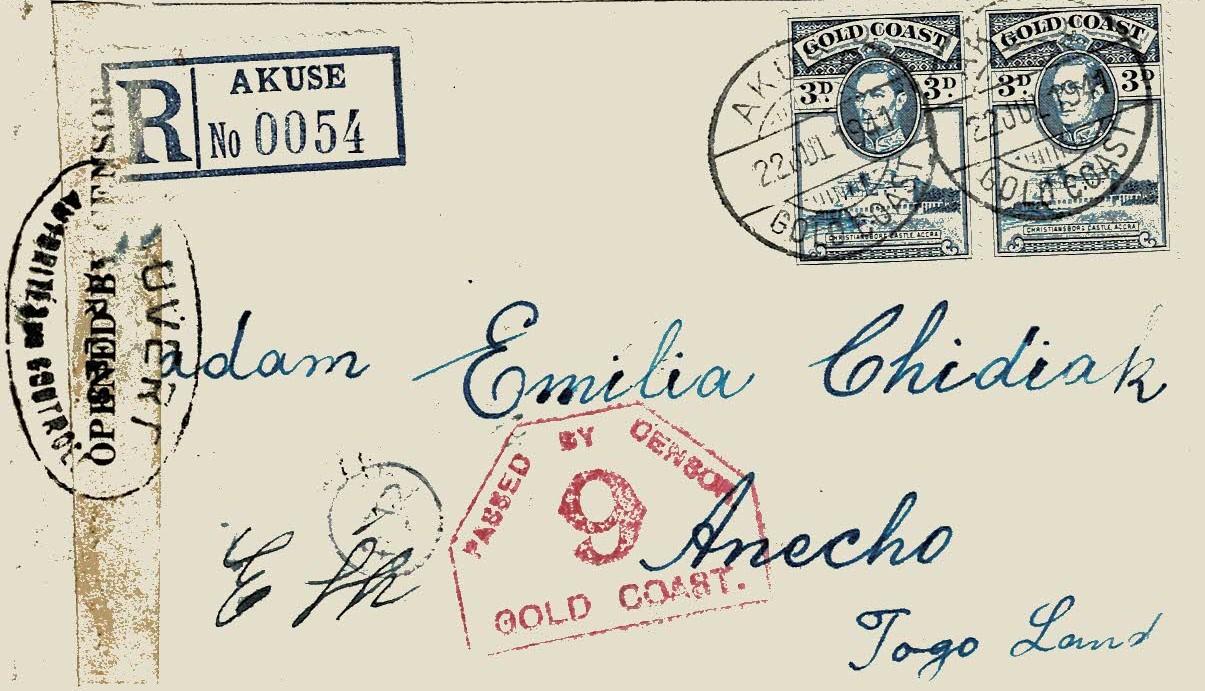 R
AKUSE
No 0054
GOLD COAST
3D 3D
CHRISTIANSBORG CASTLE, ACCRA
GOLD COAST
3D 3D
CHRISTIANSBORG CASTLE, ACCRA
AKUSE
22 JUL 1941
GOLD COAST
22 JUL 1941
GOLD COAST
OPENED BY CENSOR
OUVERT
CONTROL
adam Emilia Chidiak
PASSED BY CENSOR
9
GOLD COAST.
Anecho
Togo Land